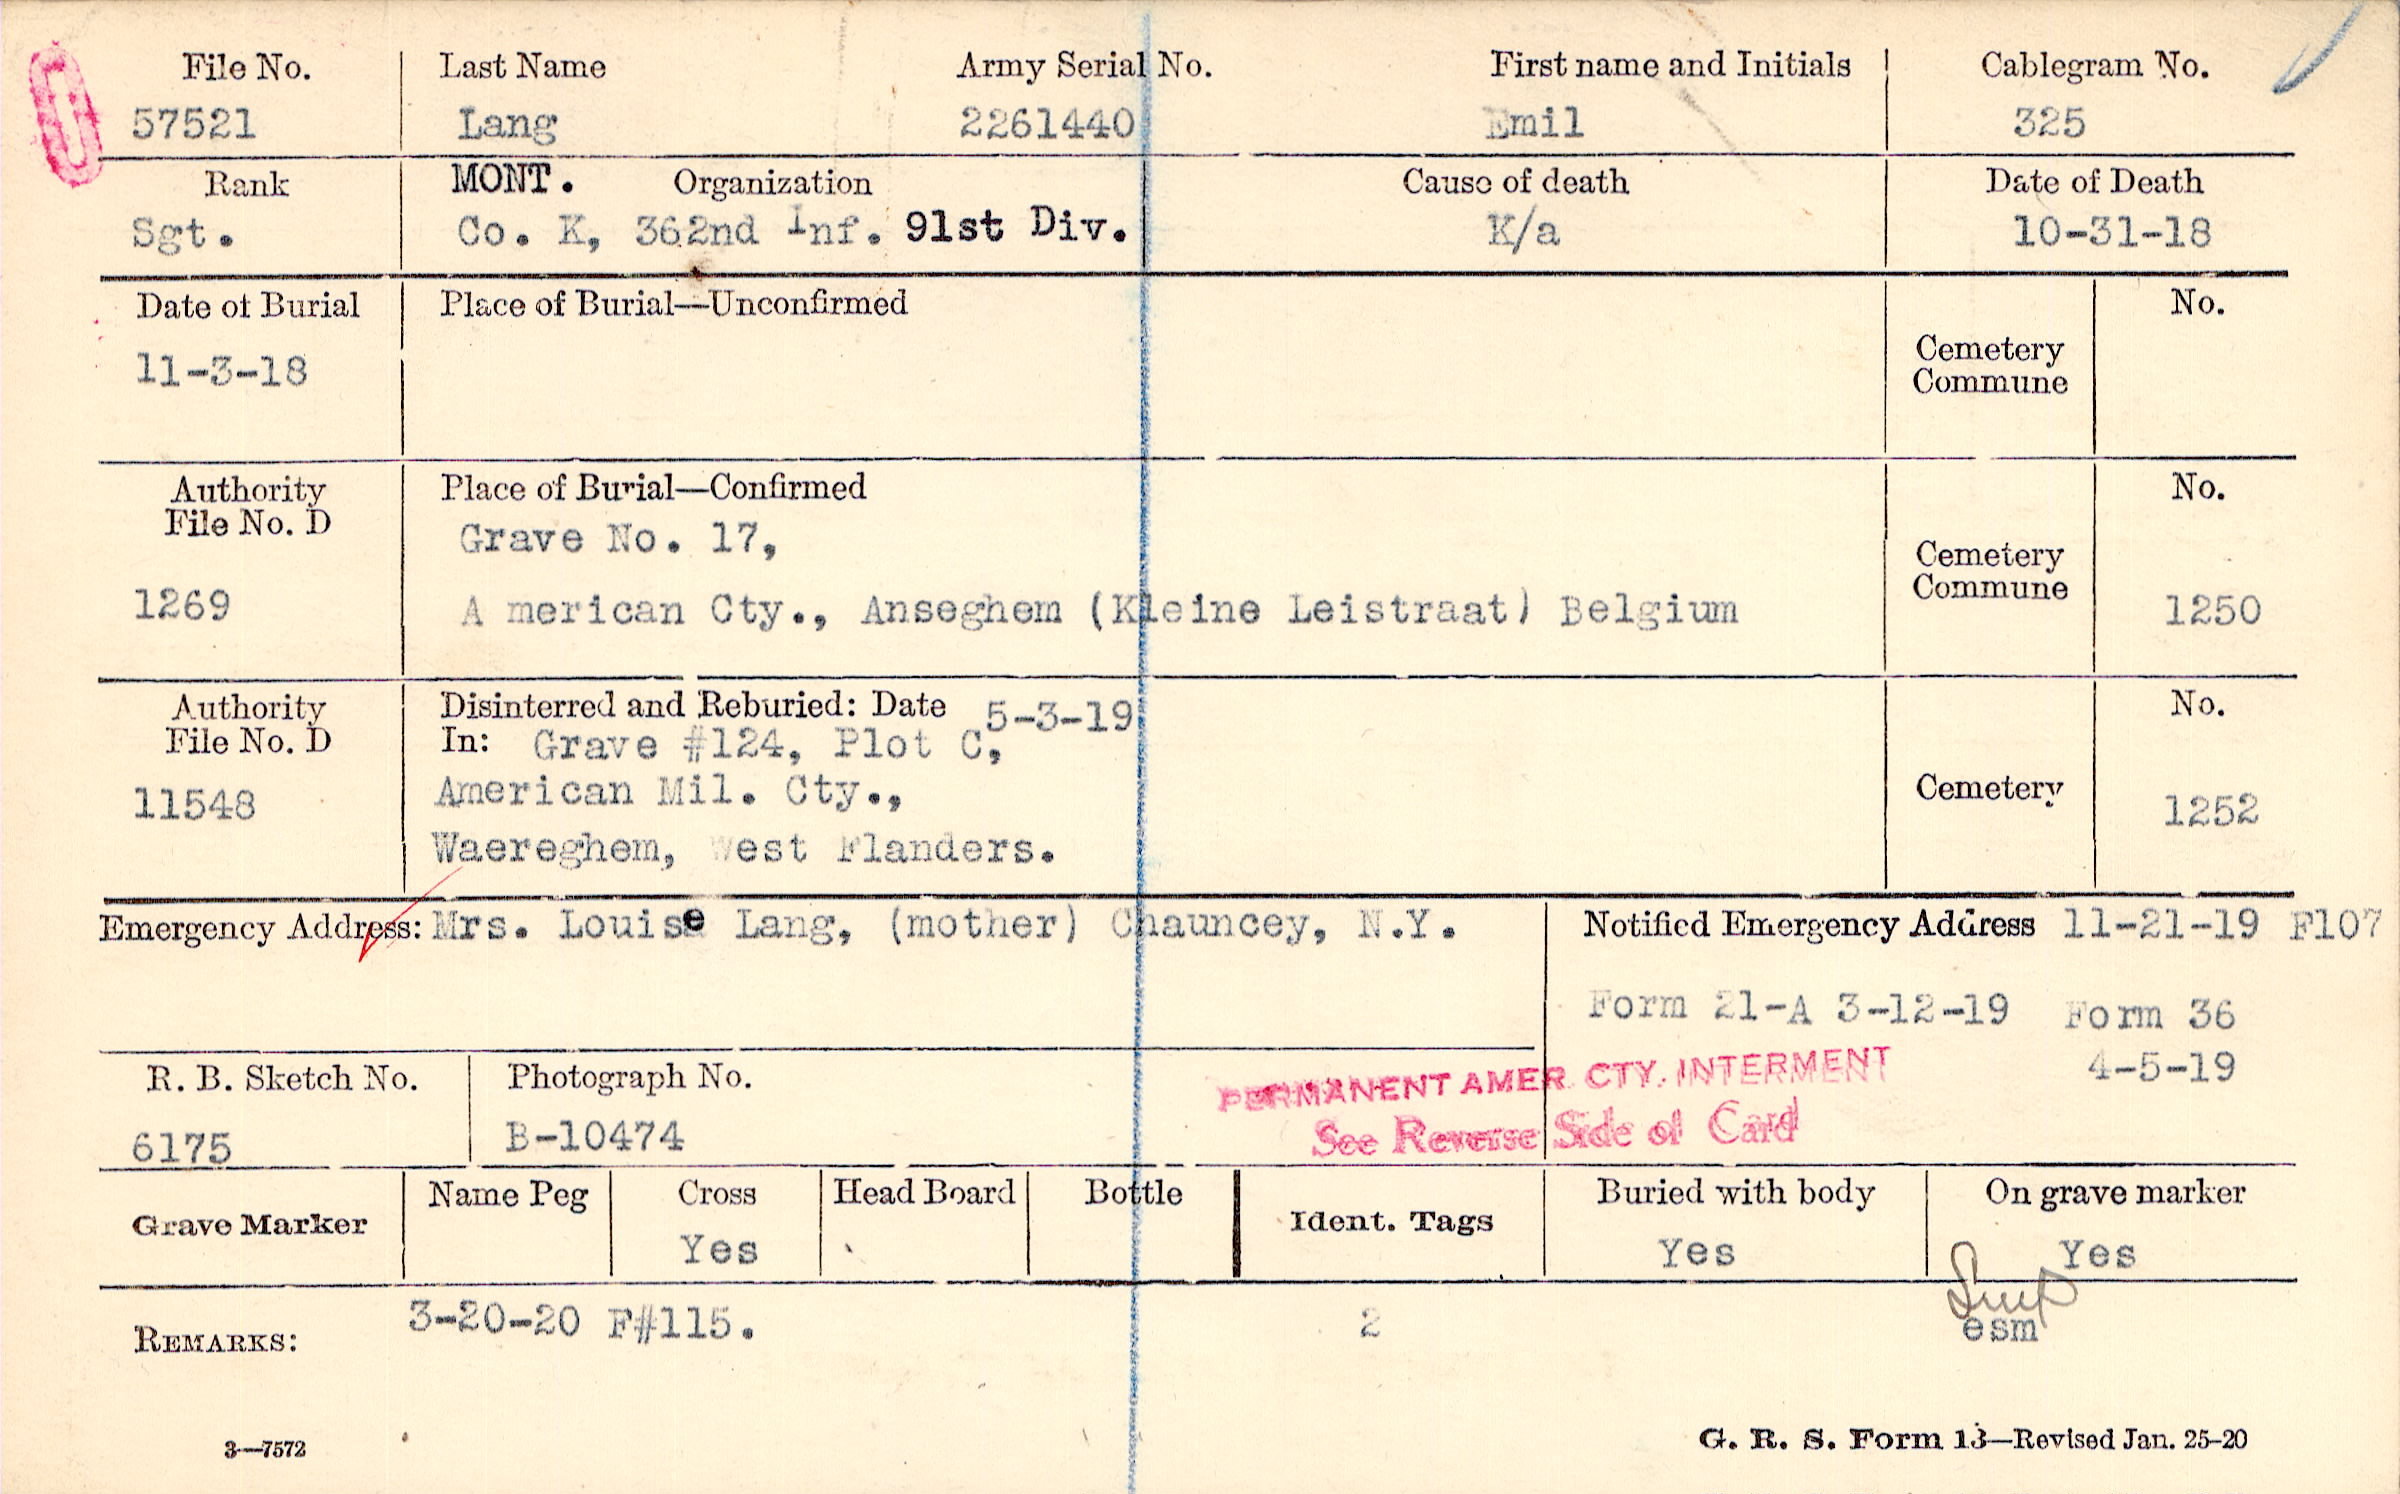 File No. Last Name Army Serial No. First name and Initials Cablegram No.
57521 Lang 2261440 Emil 325
Rank MONT. Organization Cause of death Date of Death
Sgt. Co. K, 362nd Inf. 91st Div. K/a 10-31-18
Date of Burial Place of Burial—Unconfirmed No.
11-3-18
Cemetery
Commune
Authority Place of Burial—Confirmed No.
File No. D
Grave No. 17,
Cemetery
Commune
1269 A merican Cty., Anseghem (Kleine Leistraat) Belgium 1250
Authority Disinterred and Reburied: Date 5-3-19 No.
File No. D In: Grave #124, Plot C,
11548 American Mil. Cty., Cemetery 1252
Waereghem, West Flanders.
Emergency Address: Mrs. Louise Lang, (mother) Chauncey, N.Y. Notified Emergency Address 11-21-19 F107
Form 21-A 3-12-19 Form 36
4-5-19
R. B. Sketch No. Photograph No. PERMANENT AMER. CTY. INTERMENT
6175 B-10474 See Reverse Side of Card
Grave Marker Name Peg Cross Head Board Bottle Ident. Tags Buried with body On grave marker
Yes Yes Yes
REMARKS: 3-20-20 F#115. 2 esm
3—7572 G. R. S. Form 13—Revised Jan. 25-20